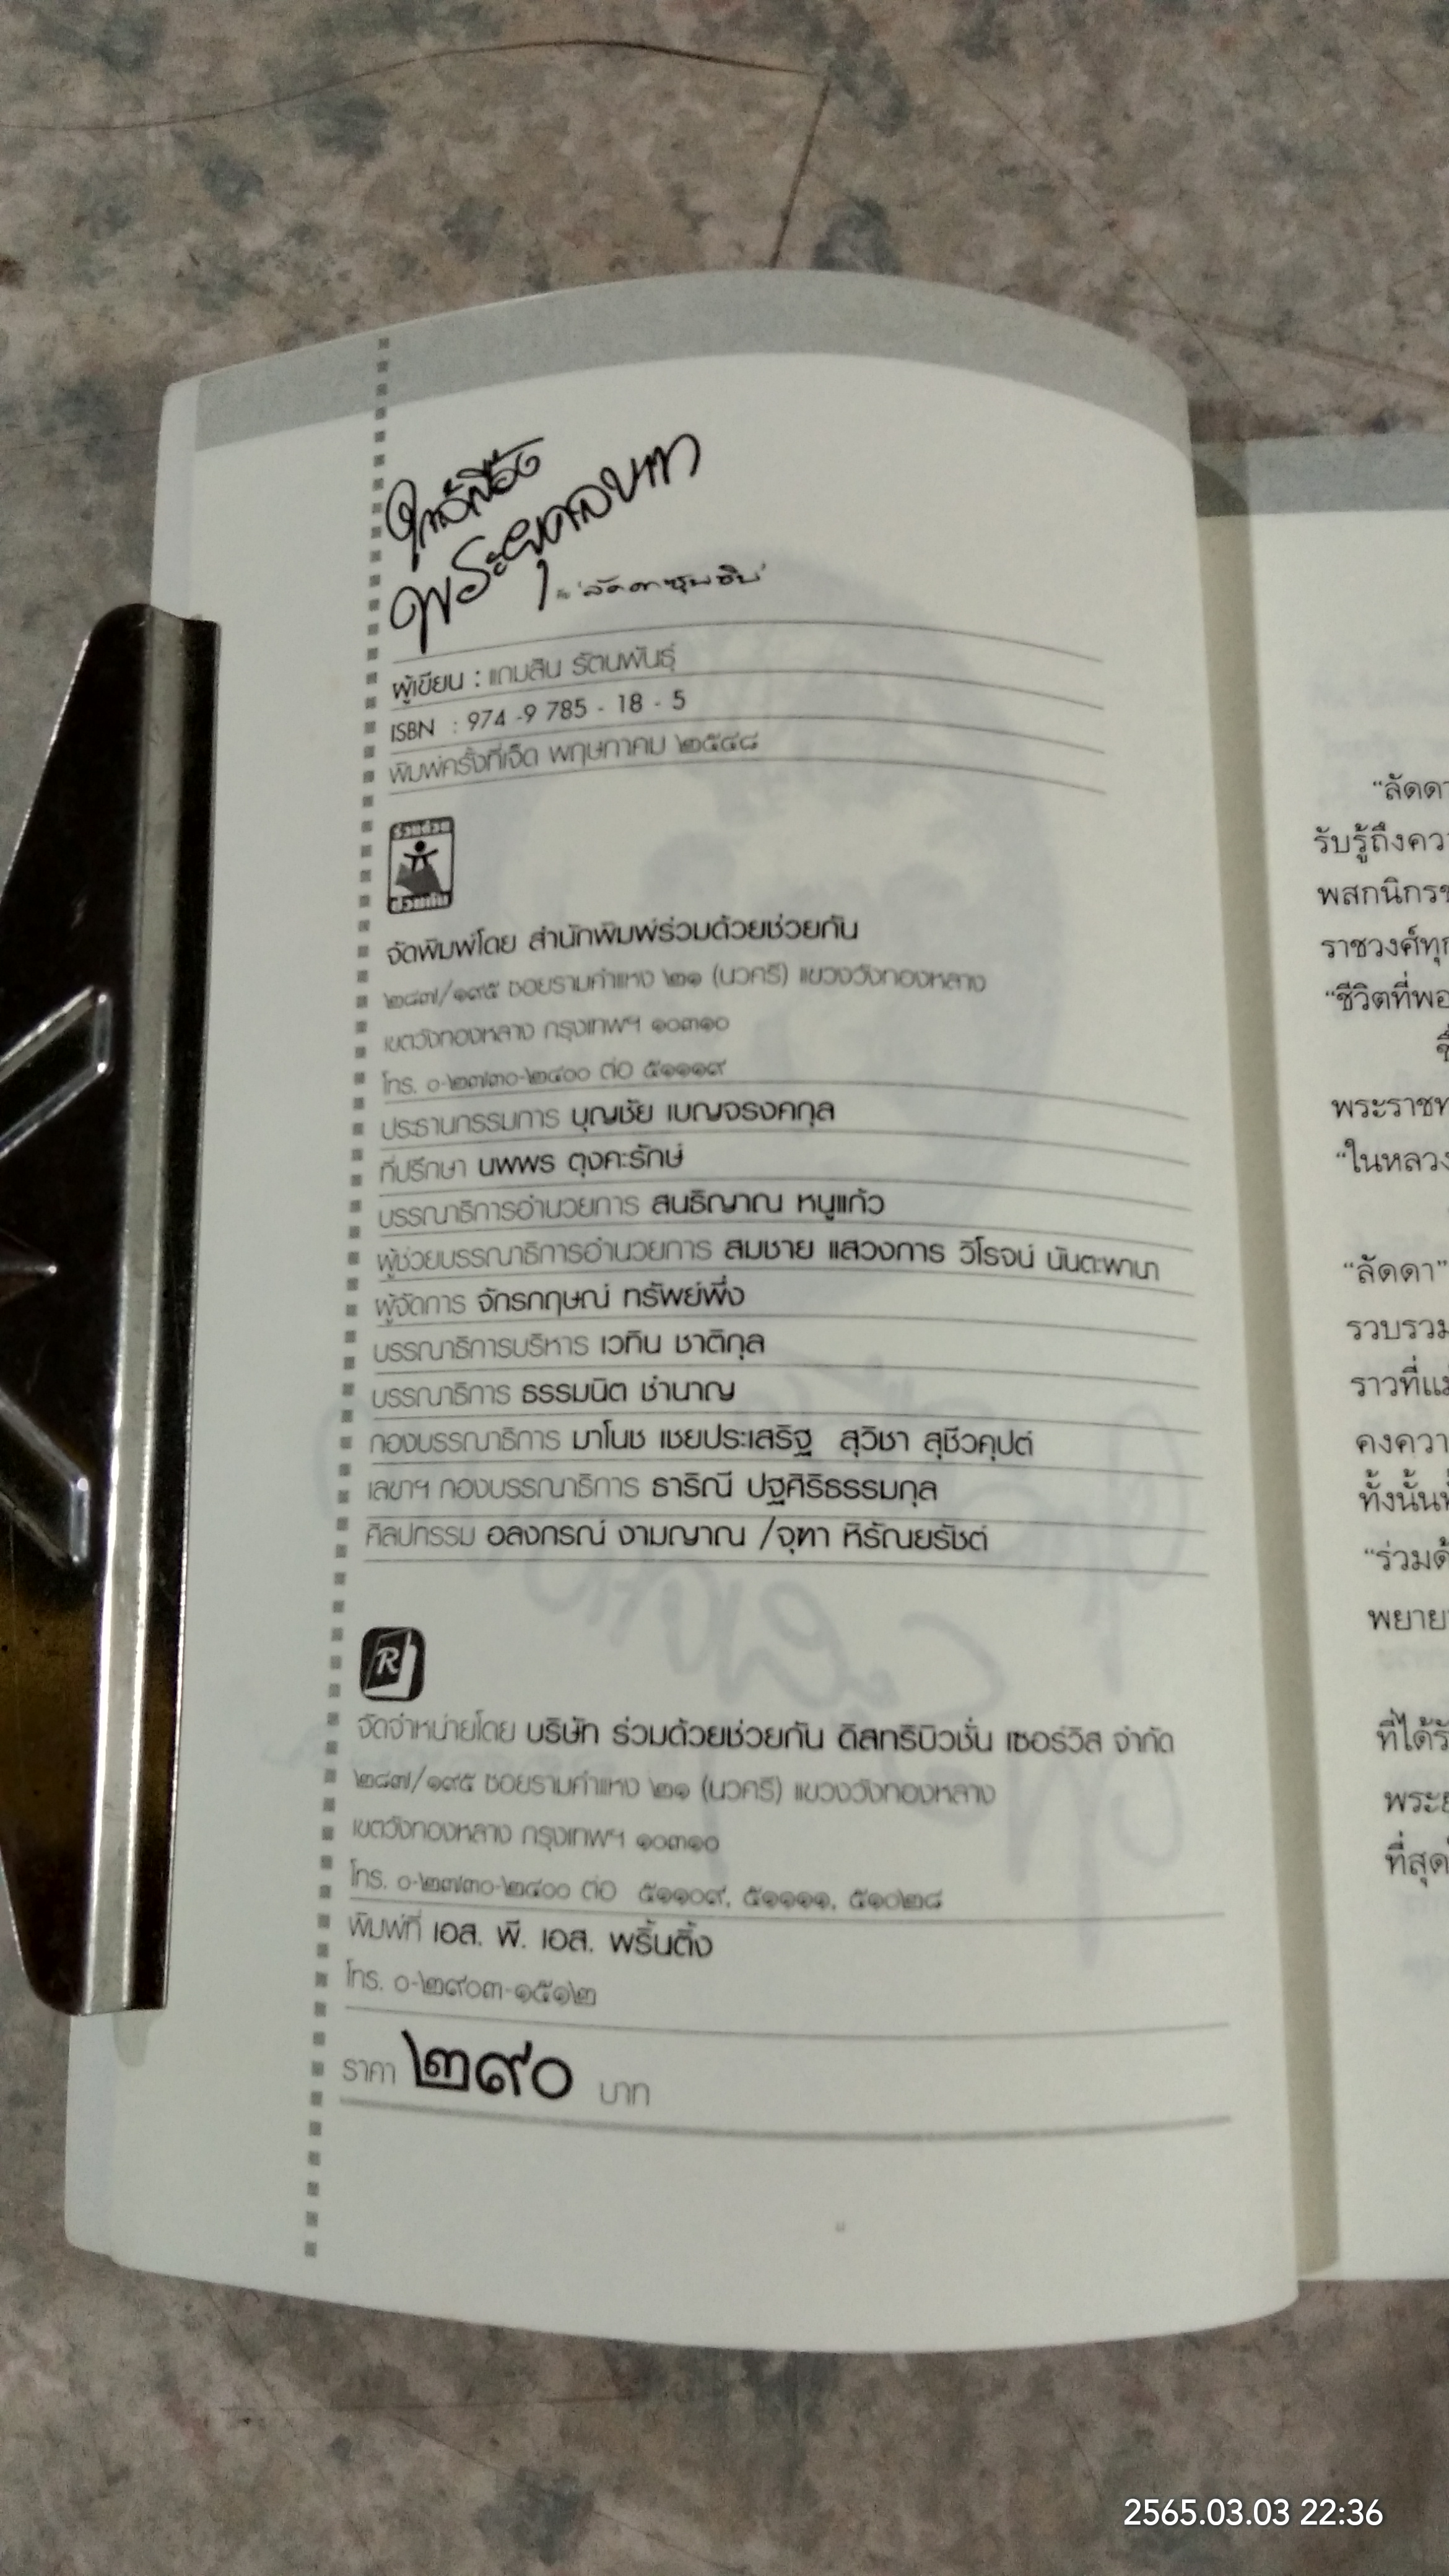 ใต้เบื้อง
พระยุคลบาท
กับ 'ลัดดาซุบซิบ'
ผู้เขียน : แถมสิน รัตนพันธุ์
ISBN : 974 -9 785 - 18 - 5
พิมพ์ครั้งที่เจ็ด พฤษภาคม ๒๕๔๘
ร่วมด้วย
ช่วยกัน
จัดพิมพ์โดย สำนักพิมพ์ร่วมด้วยช่วยกัน
๒๘๗/๑๙๕ ซอยรามคำแหง ๒๑ (นวศรี) แขวงวังทองหลาง
เขตวังทองหลาง กรุงเทพฯ ๑๐๓๑๐
โทร. ๐-๒๗๓๐-๒๔๐๐ ต่อ ๕๑๑๑๙
ประธานกรรมการ บุญชัย เบญจรงคกุล
ที่ปรึกษา นพพร ตุงคะรักษ์
บรรณาธิการอำนวยการ สนธิญาณ หนูแก้ว
ผู้ช่วยบรรณาธิการอำนวยการ สมชาย แสวงการ วิโรจน์ นันตะพานา
ผู้จัดการ จักรกฤษณ์ ทรัพย์พึ่ง
บรรณาธิการบริหาร เวทิน ชาติกุล
บรรณาธิการ ธรรมนิต ชำนาญ
กองบรรณาธิการ มาโนช เชยประเสริฐ สุวิชา สุชีวคุปต์
เลขาฯ กองบรรณาธิการ ธาริณี ปฐศิริธรรมกุล
ศิลปกรรม อลงกรณ์ งามญาณ /จุฑา หิรัณยรัชต์
R
จัดจำหน่ายโดย บริษัท ร่วมด้วยช่วยกัน ดิสทริบิวชั่น เซอร์วิส จำกัด
๒๘๗/๑๙๕ ซอยรามคำแหง ๒๑ (นวศรี) แขวงวังทองหลาง
เขตวังทองหลาง กรุงเทพฯ ๑๐๓๑๐
โทร. ๐-๒๗๓๐-๒๔๐๐ ต่อ ๕๑๑๐๙, ๕๑๑๑๑, ๕๑๐๒๘
พิมพ์ที่ เอส. พี. เอส. พริ้นติ้ง
โทร. ๐-๒๙๐๓-๑๕๑๒
ราคา ๒๙๐ บาท
“ลัดดา
รับรู้ถึงคว
พสกนิกรข
ราชวงศ์ทุก
“ชีวิตที่พอ
พระราชท
“ในหลวง
“ลัดดา”
รวบรวม
ราวที่แม
คงความ
ทั้งนั้น
“ร่วมด้
พยาย
ที่ได้รั
พระย
ที่สุด
2565.03.03 22:36